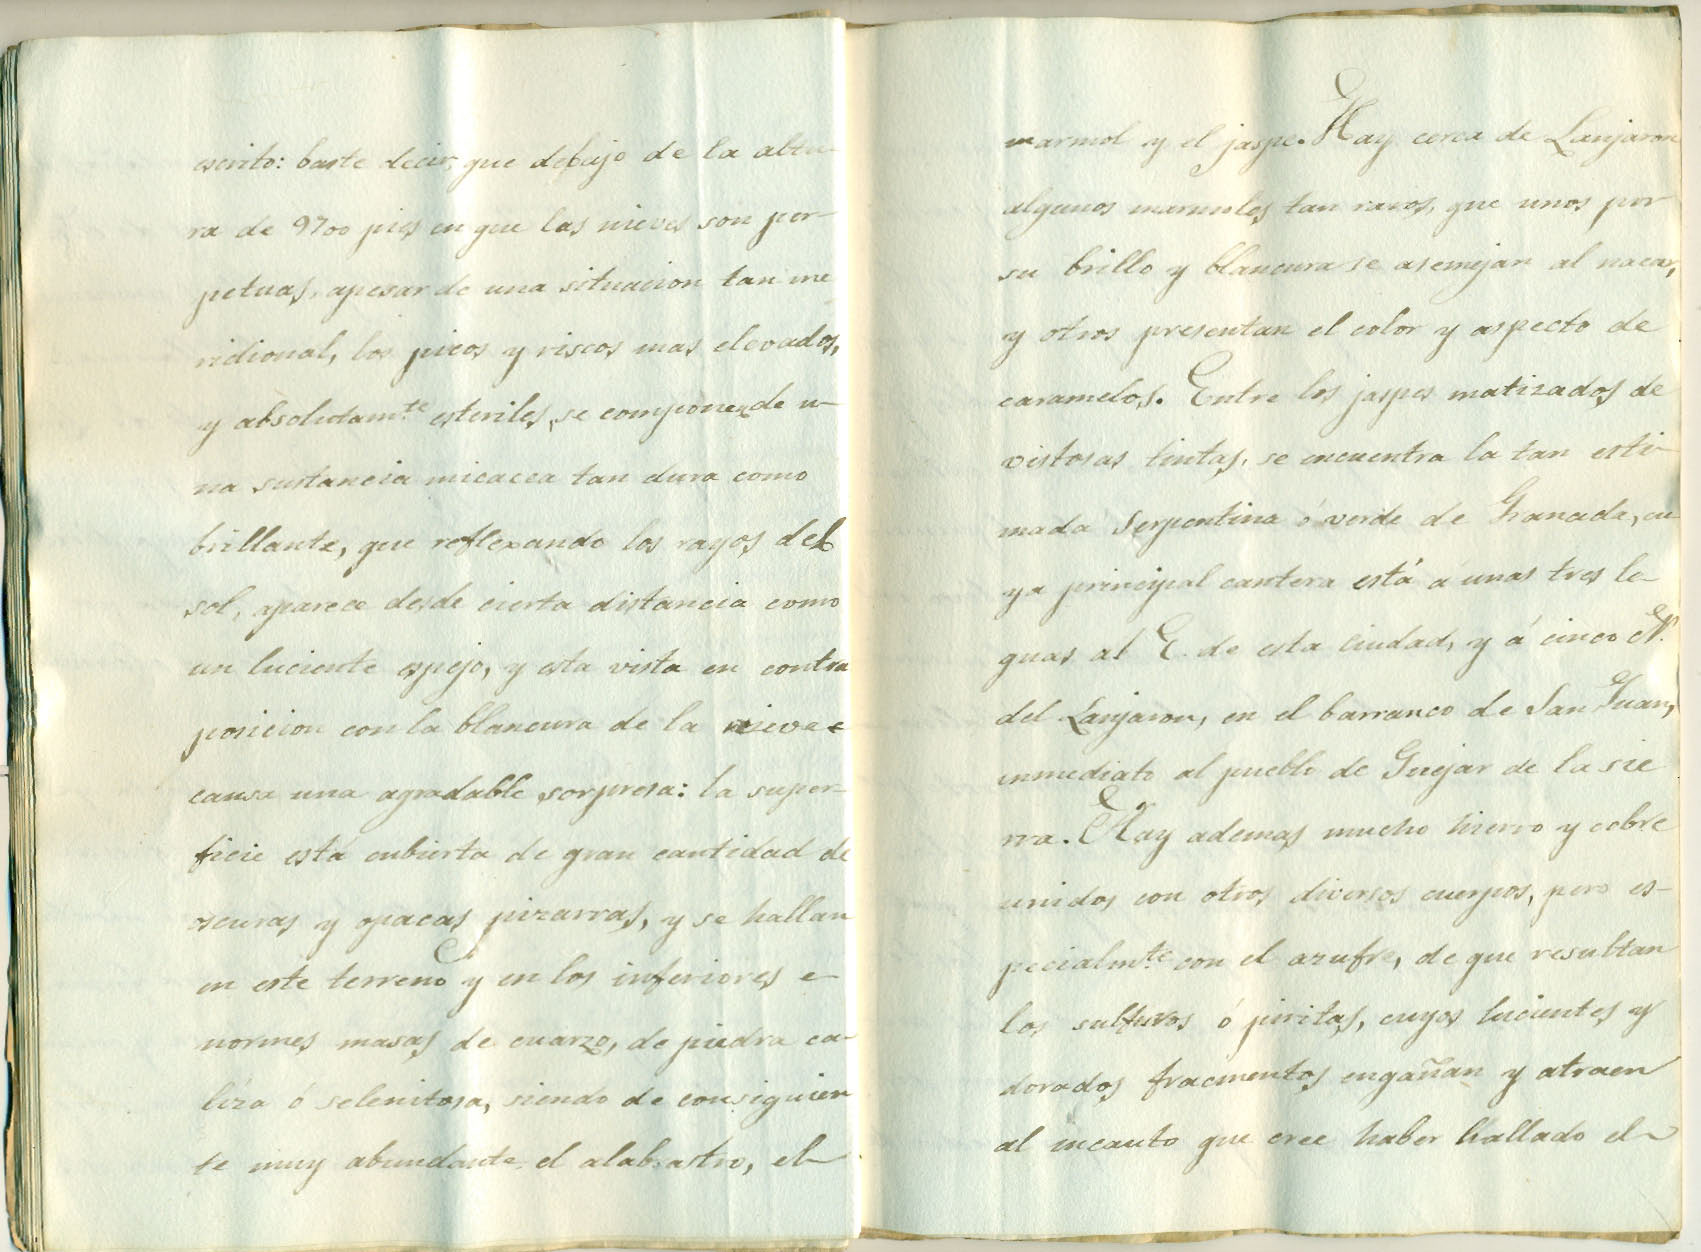 escrito: baste decir, que debajo de la altu-
ra de 9700 pies en que las nieves son per-
petuas, apesar de una situacion tan me
ridional, los picos y riscos mas elevados,
y absolutamte esteriles, se componen de u-
na sustancia micacea tan dura como
brillante, que reflexando los rayos del
sol, aparece desde cierta distancia como
un luciente espejo, y esta vista en contra
posicion con la blancura de la nieve
causa una agradable sorpresa: la super-
ficie está cubierta de gran cantidad de
oscuras y opacas pizarras, y se hallan
en este terreno y en los inferiores e-
normes masas de cuarzo, de piedra ca-
liza ó selenitosa, siendo de consiguien
te muy abundante el alabastro, el
marmol y el jaspe. Hay cerca de Lanjaron
algunos marmoles tan raros, que unos por
su brillo y blancura se asemejan al nacar,
y otros presentan el color y aspecto de
caramelos. Entre los jaspes matizados de
vistosas tintas, se encuentra la tan esti-
mada Serpentina ó verde de Granada, cu-
ya principal cantera está á unas tres le-
guas al E. de esta ciudad, y á cinco N.
del Lanjaron, en el barranco de San Juan,
inmediato al pueblo de Guejar de la sie
rra. Hay ademas mucho hierro y cobre
unidos con otros diversos cuerpos, pero es-
pecialmte con el azufre, de que resultan
los sulfuros ó piritas, cuyos lucientes y
dorados fracmentos engañan y atraen
al incauto que cree haber hallado el